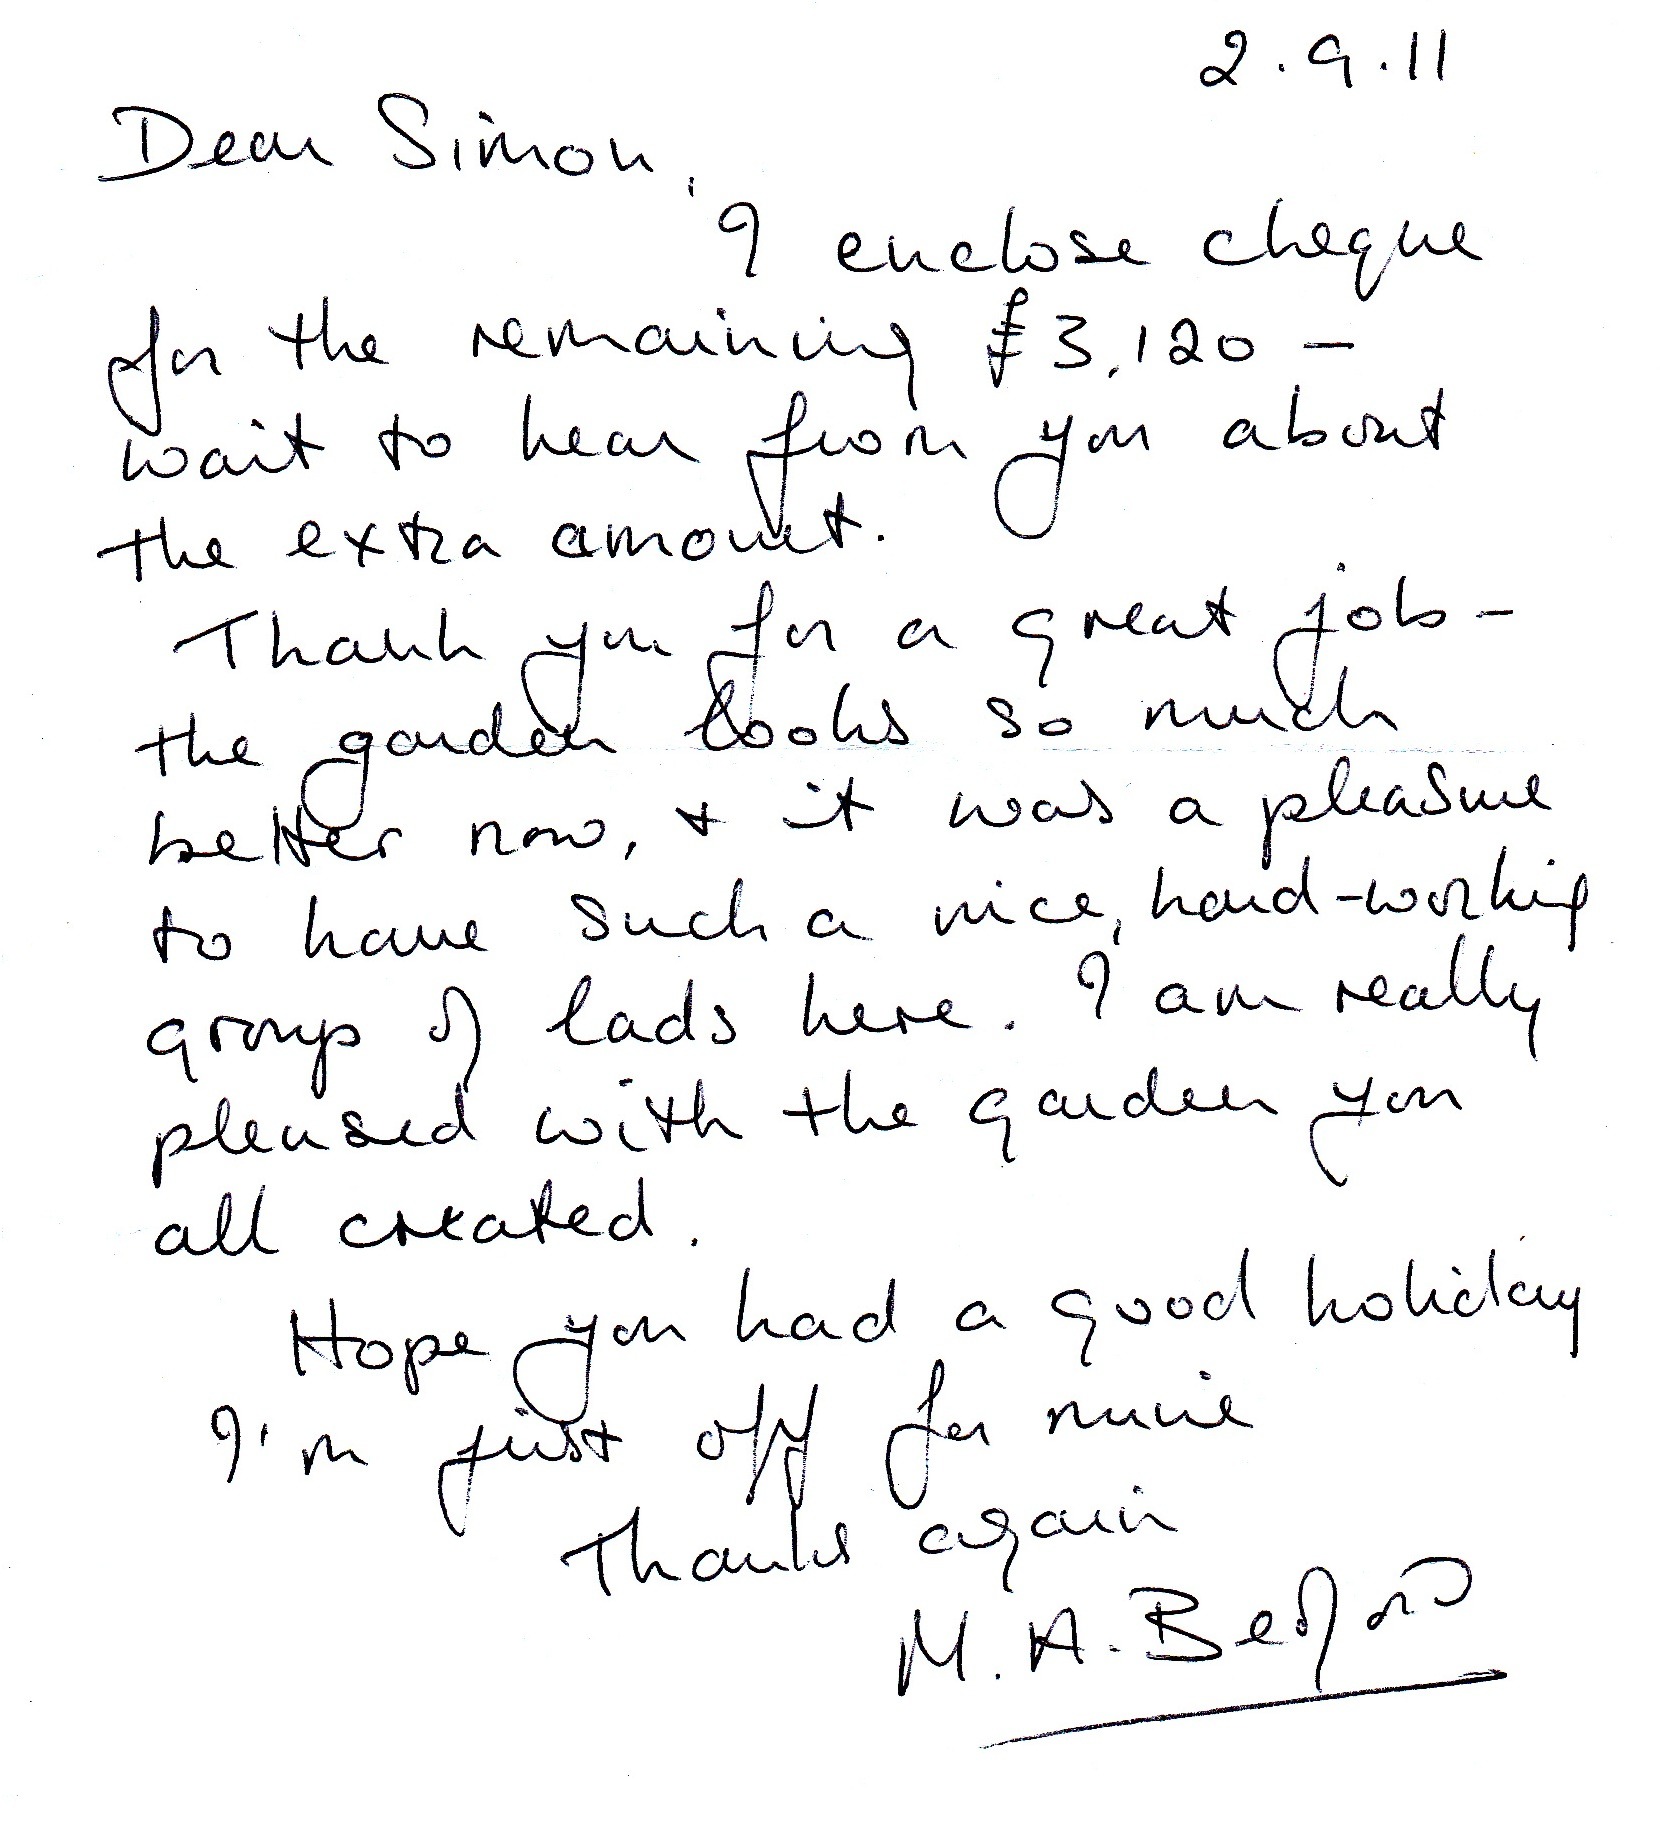 2.9.11
Dear Simon,
I enclose cheque
for the remaining £3,120 –
wait to hear from you about
the extra amount.
Thank you for a great job –
the garden looks so much
better now, + it was a pleasure
to have such a nice, hard-working
group of lads here. I am really
pleased with the garden you
all created.
Hope you had a good holiday
I'm just off for mine
Thanks again
M. A. Bedford